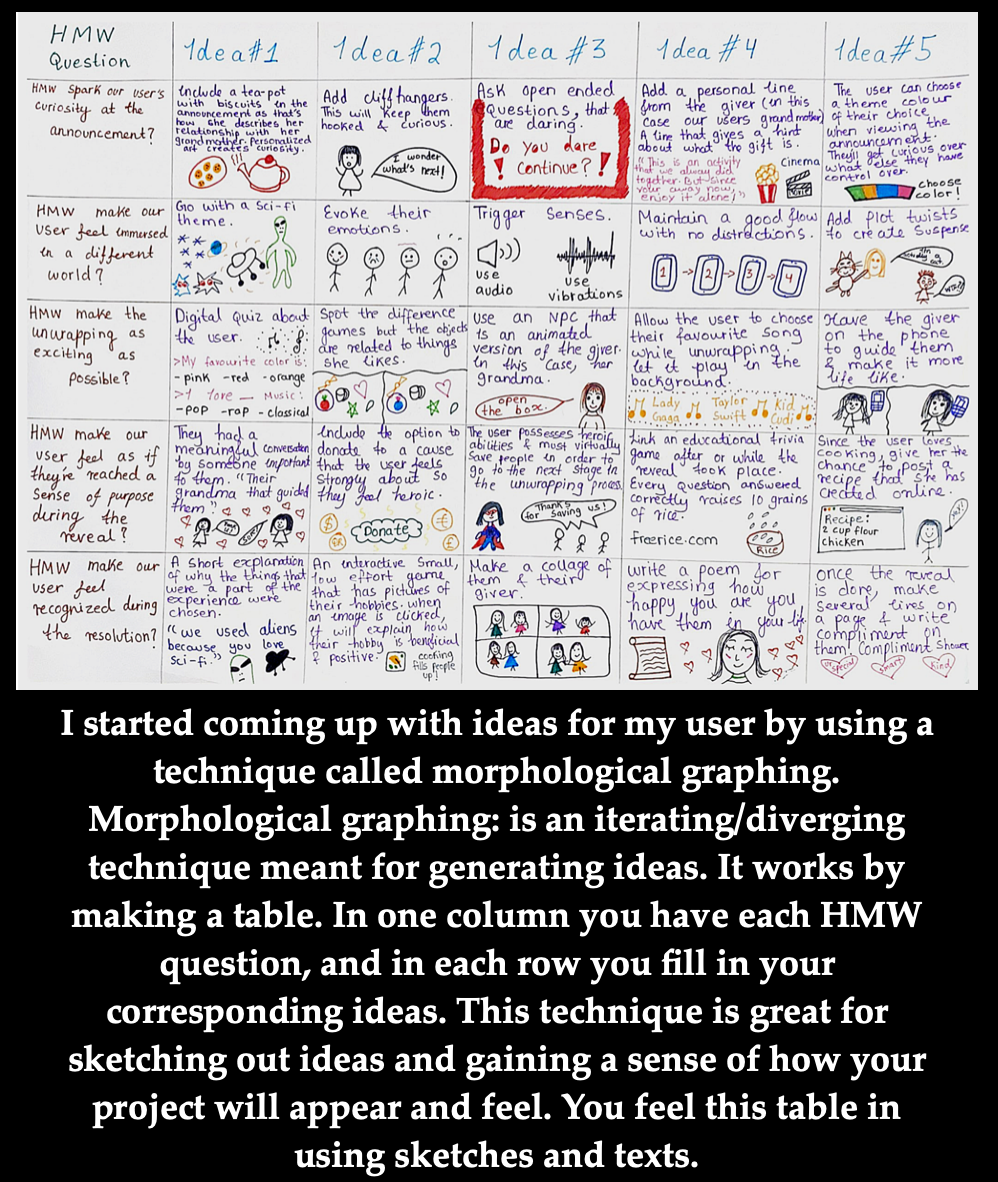 HMW
Question
Idea#1
Idea#2
Idea #3
Idea #4
Idea#5
HMW spark our user's
curiosity at the
announcement?
Include a tea-pot
with biscuits in the
announcement as that's
how she describes her
relationship with her
grandmother. Personalized
art creates curiosity.
Add cliffhangers.
This will keep them
hooked & curious.
I wonder
what's next!
Ask open ended
questions, that
are daring.
Do you dare
! Continue? !
Add a personal line
from the giver (in this
case our users grandmother)
A line that gives a hint
about what the gift is.
"This is an activity
that we always did
together. But since
your away now,
enjoy it alone!"
Cinema
The user can choose
a theme colour
of their choice
when viewing the
announcement.
They'll get curious over
what else they have
control over.
choose
color!
HMW make our
user feel immersed
in a different
world?
Go with a Sci-fi
theme.
Evoke their
emotions.
Trigger Senses.
use
audio
use
vibrations
Maintain a good flow
with no distractions.
1
2
3
4
Add plot twists
to create suspense
HMW make the
unwrapping as
exciting as
possible?
Digital Quiz about
the user.
>My favourite color is:
-pink -red -orange
>I love — Music:
-POP -rap -classical
Spot the difference
games but the objects
are related to things
she likes.
Use an NPC that
is an animated
version of the giver.
In this case, her
grandma.
open
the box.
Allow the user to choose
their favourite song
while unwrapping.
let it play in the
background.
Lady
Gaga
Taylor
Swift
Kid
Cudi
Have the giver
on the phone
to guide them
& make it more
life like.
HMW make our
user feel as if
they're reached a
sense of purpose
during the
reveal?
They had a
meaningful conversation
by someone important
to them. "Their
grandma that guided
them."
Include the option to
donate to a cause
that the user feels
strongly about so
they feel heroic.
Donate
The user possesses heroify
abilities & must virtually
save people in order to
go to the next stage in
the unwrapping process.
Thanks
for saving us!
Link an educational trivia
game after or while the
reveal took place.
Every question answered
correctly raises 10 grains
of rice.
freerice.com
RICE
Since the user loves
cooking, give her the
chance to post a
recipe that she has
created online.
Recipe:
2 cup flour
chicken
yay!
HMW make our
user feel
recognized during
the resolution?
A short explanation
of why the things that
were a part of the
experience were
chosen.
"we used aliens
because you love
sci-fi."
An interactive small,
low effort game
that has pictures of
their hobbies. when
an image is clicked,
it will explain how
their hobby is beneficial
& positive.
cooking
fills people
up!
Make a collage of
them & their
giver.
Write a poem for
expressing how
happy you are you
have them in your life.
once the reveal
is done, make
several lines on
a page & write
compliment on
them! Compliment Shower
special
smart
kind
I started coming up with ideas for my user by using a
technique called morphological graphing.
Morphological graphing: is an iterating/diverging
technique meant for generating ideas. It works by
making a table. In one column you have each HMW
question, and in each row you fill in your
corresponding ideas. This technique is great for
sketching out ideas and gaining a sense of how your
project will appear and feel. You feel this table in
using sketches and texts.